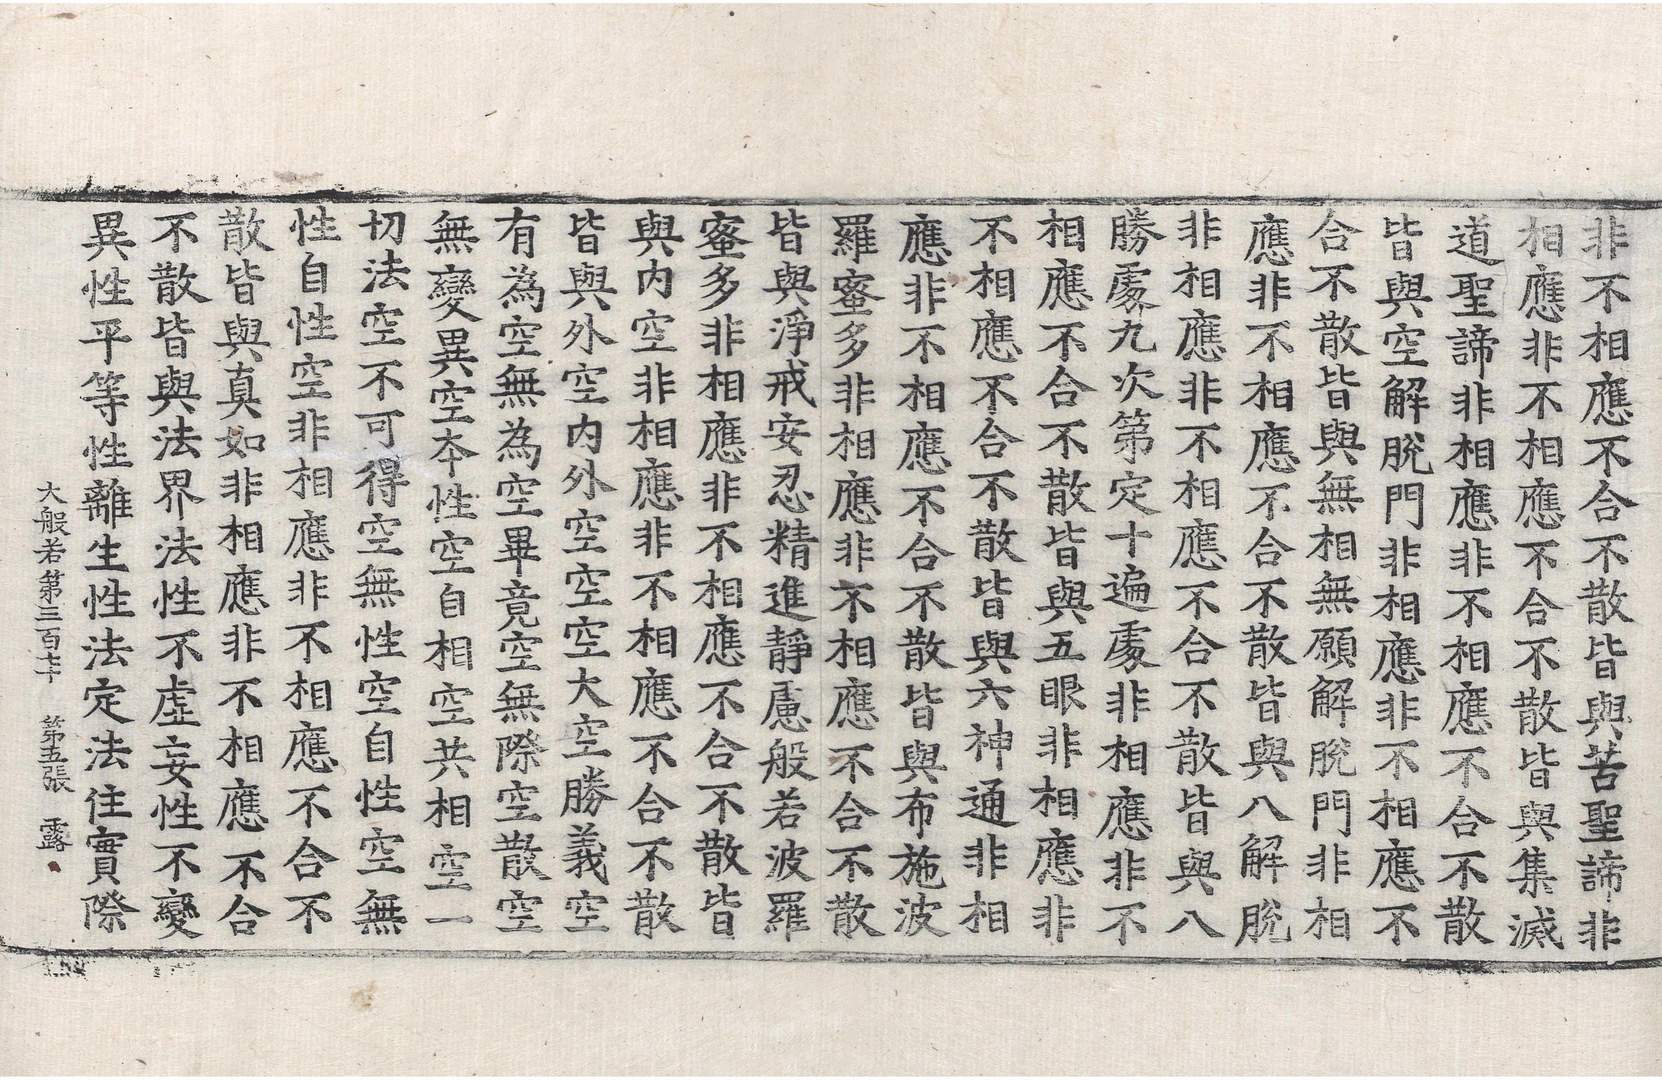 非不相應不合不散皆與苦聖諦非
相應非不相應不合不散皆與集滅
道聖諦非相應非不相應不合不散
皆與空解脫門非相應非不相應不
合不散皆與無相無願解脫門非相
應非不相應不合不散皆與八解脫
非相應非不相應不合不散皆與八
勝處九次第定十遍處非相應非不
相應不合不散皆與五眼非相應非
不相應不合不散皆與六神通非相
應非不相應不合不散皆與布施波
羅蜜多非相應非不相應不合不散
皆與淨戒安忍精進靜慮般若波羅
蜜多非相應非不相應不合不散皆
與内空非相應非不相應不合不散
皆與外空内外空空空大空勝義空
有為空無為空畢竟空無際空散空
無變異空本性空自相空共相空一
切法空不可得空無性空自性空無
性自性空非相應非不相應不合不
散皆與真如非相應非不相應不合
不散皆與法界法性不虛妄性不變
異性平等性離生性法定法住實際
大般若第三百七十 第五張 露